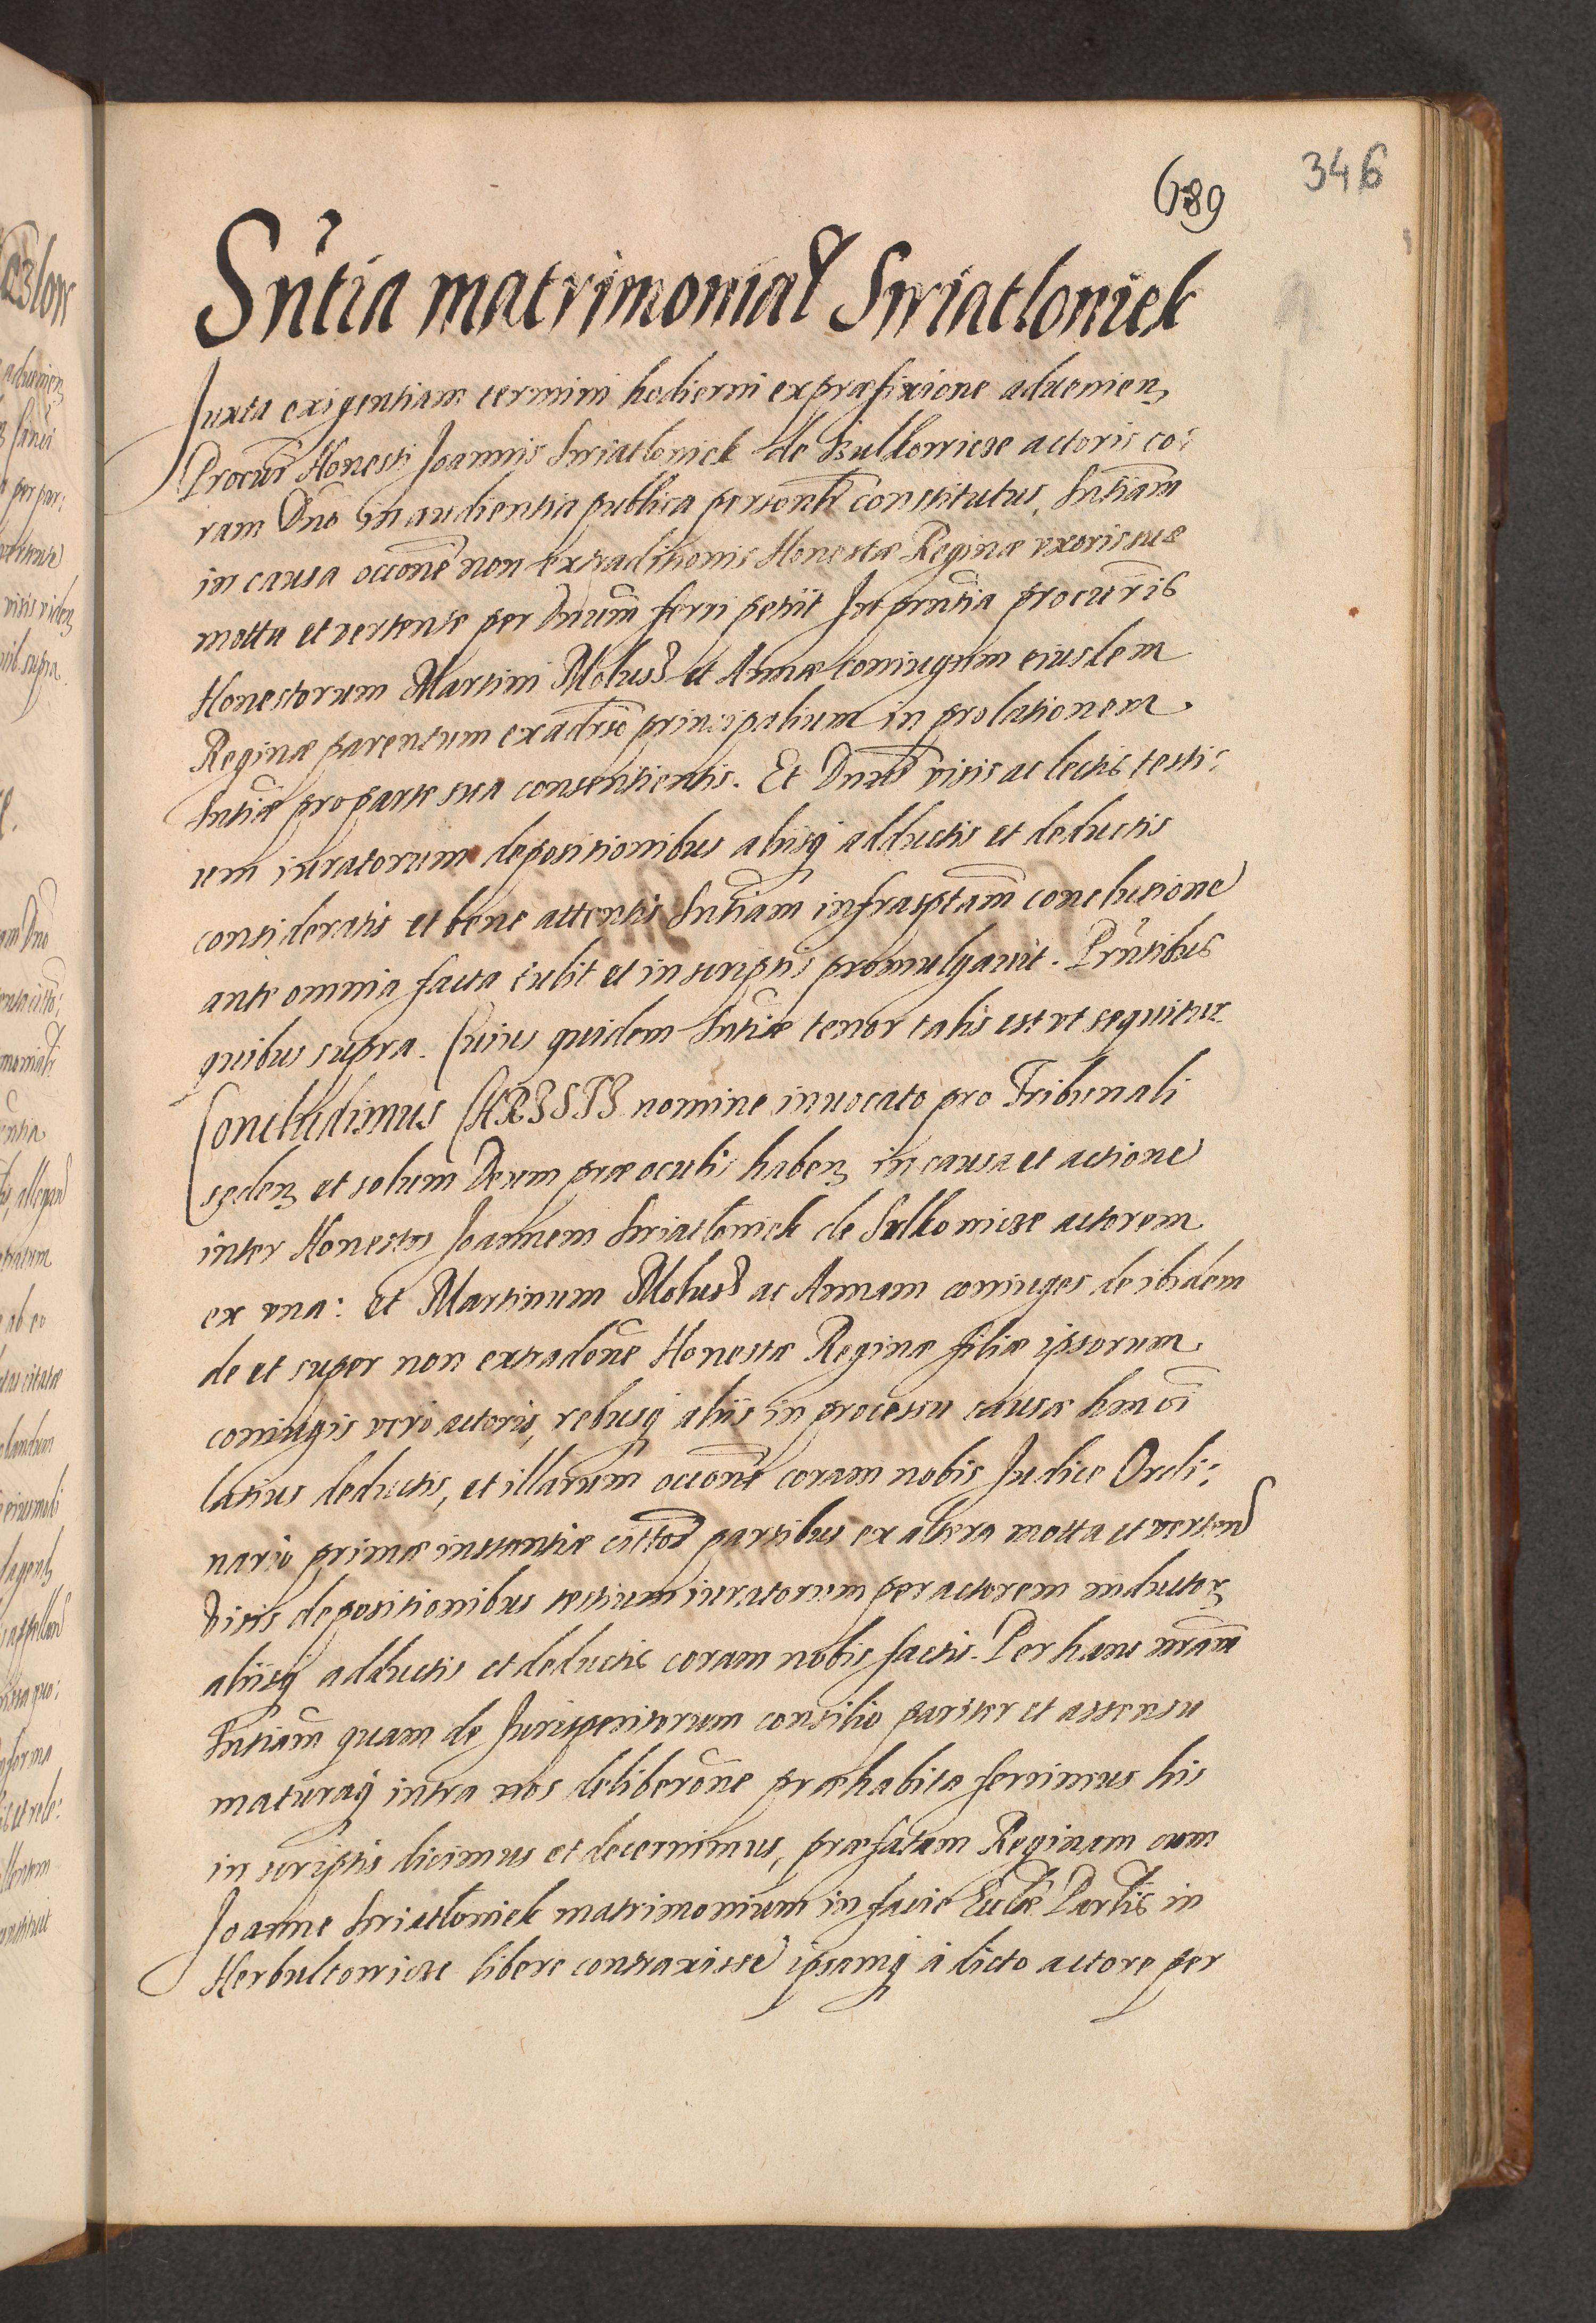 346
689
Sñtia matrimonial Swiatloniek
Juxta exigentiam termini hodierni ex præfixione aduenien
Procur Honesti Joannis Swiatloniek de Bulkowicze actoris co:
ram Dño in audientia publica personlr constitutus, Sntiam
in causa occone non extraditionis Honestæ Reginæ vxoris suæ
motta et vertente per Dnum ferri petiit In pntia procuris
Honestorum Martini Molus et Annæ coniugum eiusdem
Reginæ parentum ex adrso principalium in prolationem
Sntiæ pro parte sua consentientis. Et Dnus visis ac lectis testi:
um iuratorum depositionibus aliisq adductis et deductis
consideratis et bene attentis Sntiam infrasptam conclusione
ante omnia facta tulit et in scriptis promulgauit. Pñtibus
quibus supra. Cuius quidem Sntiæ tenor talis est vt sequitur
Concludimus CHRISTI nomine inuocato pro Tribunali
seden et solum Deum præ oculis haben in causa et actione
inter Honestos Joannem Swiatloniek de Sulkowicze actorem
ex vna: et Martinum Molus ac Annam coniuges de ibidem
de et super non extradone Honestæ Reginæ filiæ ipsorum
coniugis vero actoris, rebusq aliis in processu causæ hmoi
latius deductis, et illarum occone coram nobis Judice Ordi:
nario primæ instantiæ partibus ex altera motta et verten
Visis depositionibus testium iuratorum per actorem inductor
aliisq adductis et deductis coram nobis factis. Per hanc nram
Sntiam quam de Jurisperitorum consilio pariter et assensu
maturaq intra nos deliberone præhabita ferimus his
in scriptis dicimus et decernimus, præfatam Reginam cum
Joanne Swiatloniek matrimonium in facie Eccliæ Parlis in
Herbultowicze libere contraxisse ipsamq a dicto actore per